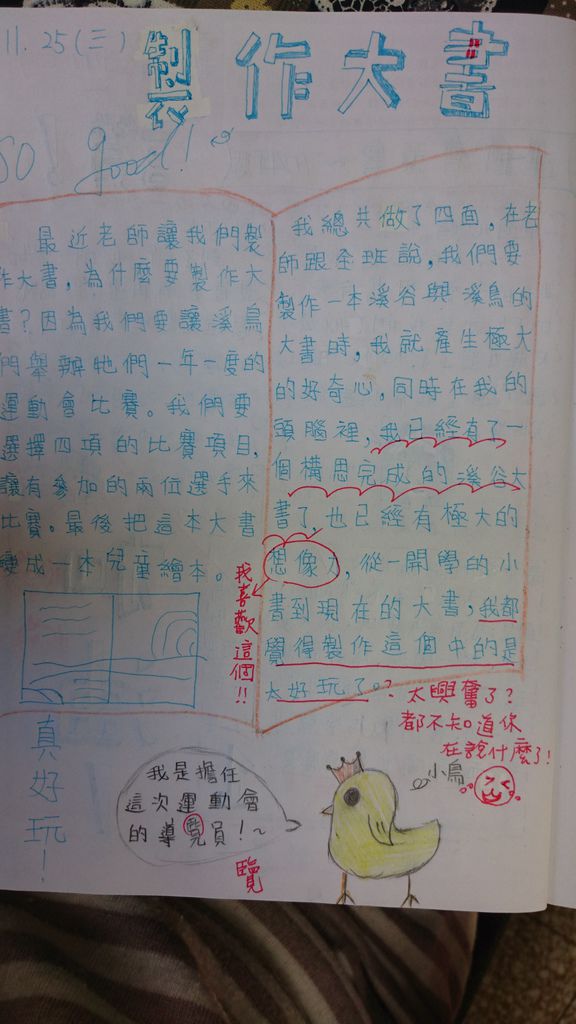 11.25(三)
製作大書
so good!
最近老師讓我們製
作大書,為什麼要製作大
書?因為我們要讓溪鳥
們舉辦牠們一年一度的
運動會比賽。我們要
選擇四項的比賽項目,
讓有參加的兩位選手來
比賽。最後把這本大書
變成一本兒童繪本。
真好玩!
我總共做了四面,在老
師跟全班說,我們要
製作一本溪谷與溪鳥的
大書時,我就產生極大
的好奇心,同時在我的
頭腦裡,我已經有了一
個構思完成的溪谷大
書了,也已經有極大的
想像力,從一開學的小
書到現在的大書,我都
覺得製作這個中的是
太好玩了。?
我喜歡這個!!
太興奮了?
都不知道你
在說什麼了!
小鳥
我是擔任
這次運動會
的導員!~
覽